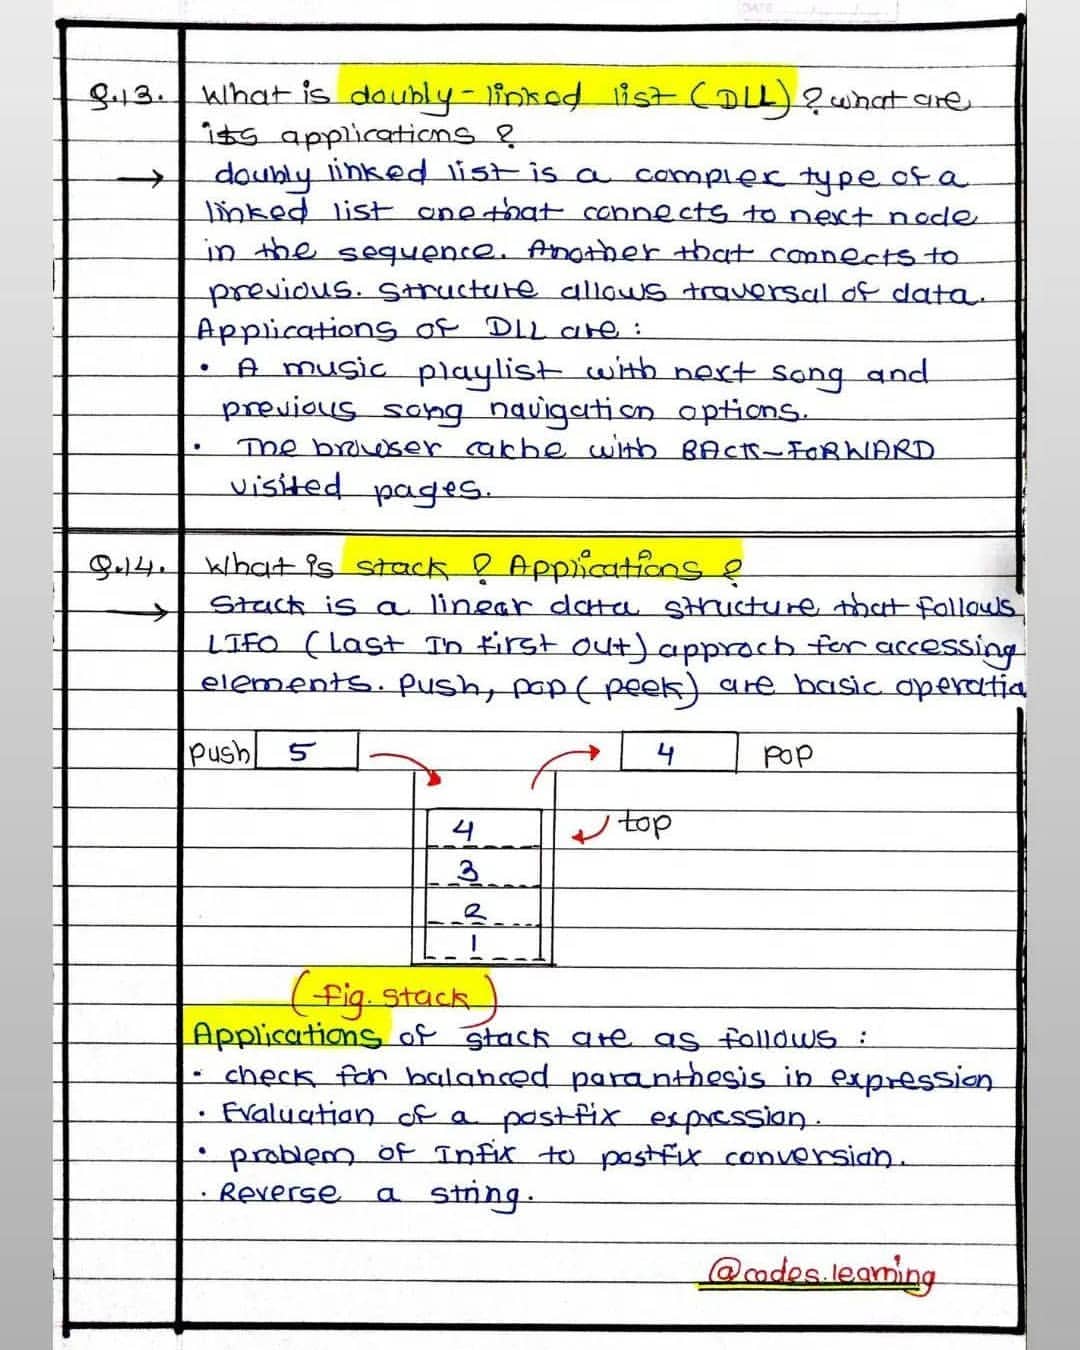 DATE
Q.13. What is doubly-linked list (DLL) ? what are
its applications ?
→ doubly linked list is a complex type of a
linked list one that connects to next node
in the sequence. Another that connects to
previous. structure allows traversal of data.
Applications of DLL are :
• A music playlist with next song and
previous song navigation options.
• The browser cakhe with BACK-FORWARD
visited pages.
Q.14. What is stack ? Applications ?
→ Stack is a linear data structure that follows
LIFO (last In first out) approch for accessing
elements. Push, pop (peek) are basic operatio
push 5 4 POP
4 top
3
2
1
(fig. stack)
Applications of stack are as follows :
• check for balanced paranthesis in expression
• Evaluation of a postfix expression.
• problem of Infix to postfix conversion.
• Reverse a string.
@codes.learning